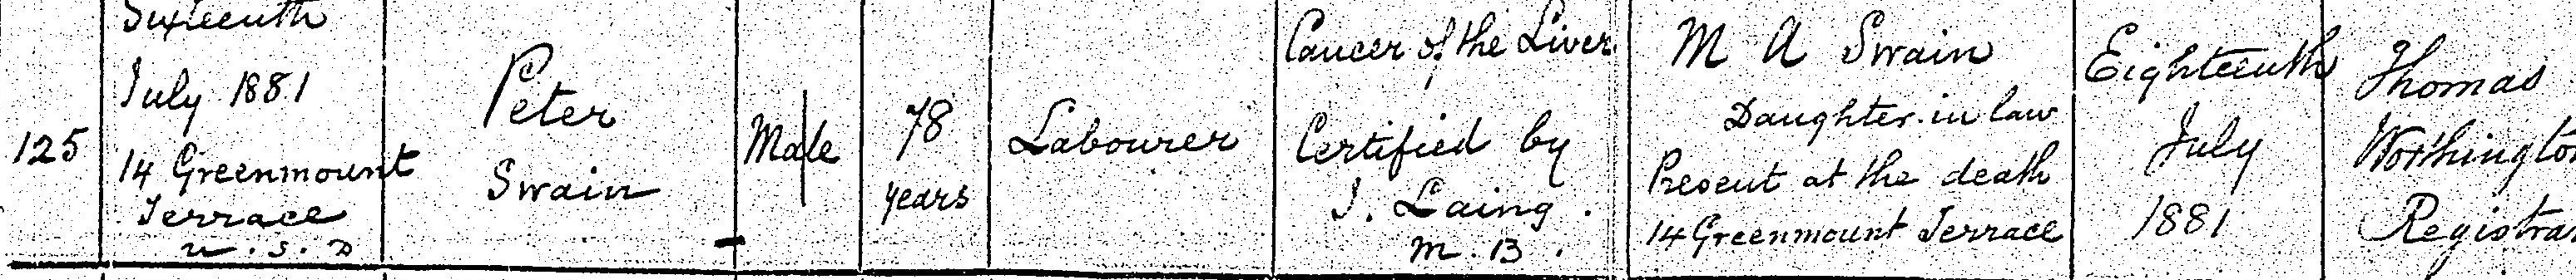 125
Sixteenth
July 1881
14 Greenmount
Terrace
U.S.D
Peter
Swain
Male
78
years
Labourer
Cancer of the Liver
Certified by
J. Laing.
M.B.
M A Swain
Daughter in law
Present at the death
14 Greenmount Terrace
Eighteenth
July
1881
Thomas
Worthington
Registrar